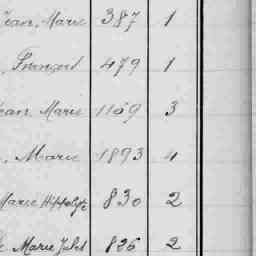 Jean, Marie 387 1
479 1
Jean Marie 1169 3
, Marie 1893 4
Marie Hippolyte 830 2
Marie Jules 826 2